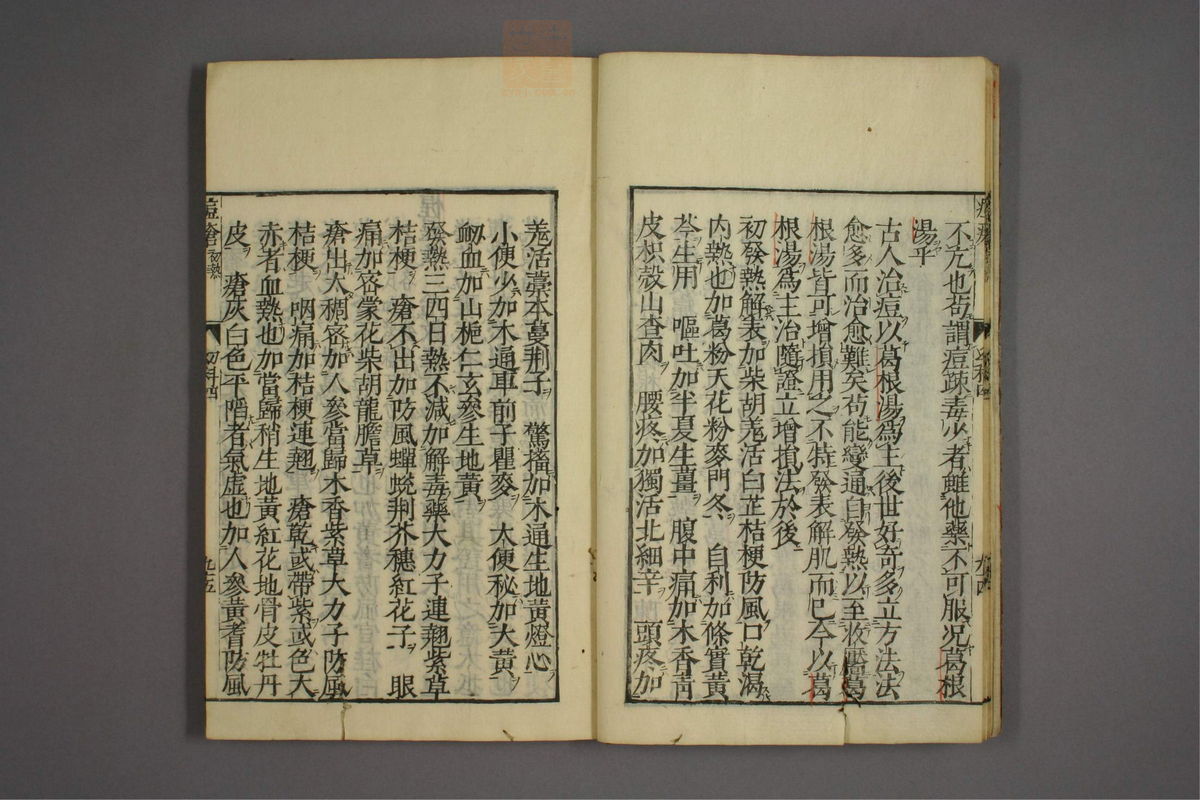 不亢也苟謂痘疎毒少者雖他藥不可服况葛根
湯乎
古人治痘以葛根湯爲主後世好奇多立方法法
愈多而治愈難矣苟能變通自發熱以至收靨葛
根湯皆可增損用之不特發表解肌而已今以葛
根湯爲主治隨證立增損法於後
初發熱解表加柴胡羗活白芷桔梗防風口乾渴
内熱也加葛粉天花粉麥門冬 自利加條實黄
芩生用 嘔吐加半夏生薑 腹中痛加木香靑
皮枳殻山查肉 腰疼加獨活北細辛 頭疼加
羗活藁本蔓荆子 驚搐加木通生地黄燈心
小便少加木通車前子瞿麥 大便秘加大黄
衂血加山梔仁玄參生地黄
發熱三四日熱不減加解毒藥大力子連翹紫草
桔梗 瘡不出加防風蟬蛻荆芥穗紅花子 眼
痛加密蒙花柴胡龍膽草
瘡出太稠密加人參當歸木香紫草大力子防風
桔梗 咽痛加桔梗連翹 瘡乾或帶紫或色大
赤者血熱也加當歸稍生地黄紅花地骨皮牡丹
皮 瘡灰白色平陷者氣虚也加人參黄耆防風
痘瘡初熱
幼科四
九五